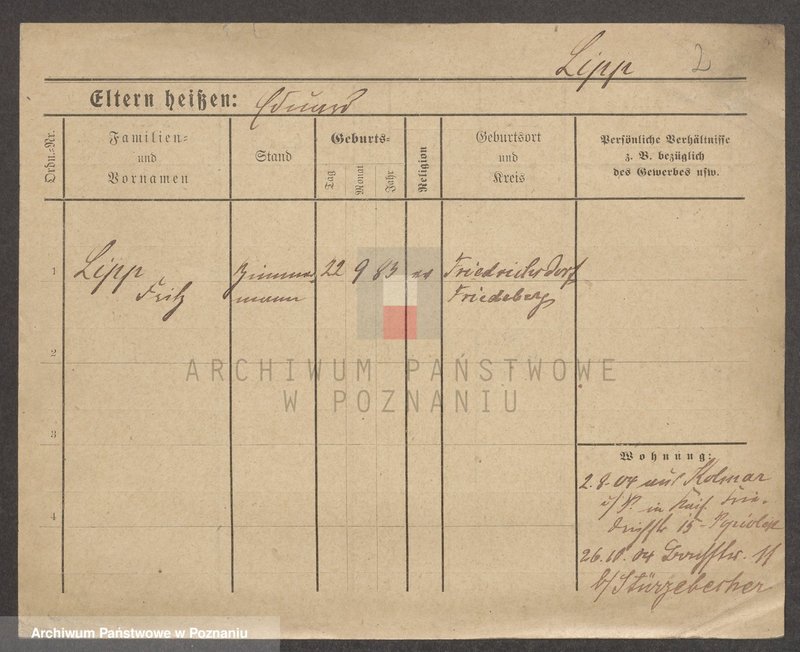 Lipp 2
Eltern heißen: Eduard
Ordn.-Nr.
Familien- und Vornamen
Stand
Geburts-
Tag
Monat
Jahr
Religion
Geburtsort und Kreis
Persönliche Verhältnisse
z. B. bezüglich
des Gewerbes usw.
1 Lipp Zimmer 22 9 83 ev Friedrichsdorf
Fritz mann Friedeberg
2
3
4
Wohnung:
2.8.04 aus Kolmar
i/P. in Kais. Frie-
drichstr 15
26.10.04
b/Stürzebecher
ARCHIWUM PAŃSTWOWE
W POZNANIU
Archiwum Państwowe w Poznaniu